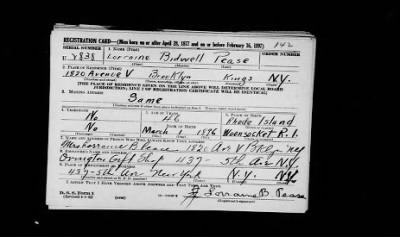 REGISTRATION CARD—(Men born on or after April 28, 1877 and on or before February 16, 1897)
SERIAL NUMBER 1. NAME (Print) ORDER NUMBER
U 2838 Lorraine Bidwell Pease 142
2. PLACE OF RESIDENCE (Print)
1820 Avenue V Brooklyn Kings N.Y.
[THE PLACE OF RESIDENCE GIVEN ON THE LINE ABOVE WILL DETERMINE LOCAL BOARD
JURISDICTION; LINE 2 OF REGISTRATION CERTIFICATE WILL BE IDENTICAL]
3. MAILING ADDRESS
Same
4. TELEPHONE 5. AGE IN YEARS 6. PLACE OF BIRTH
No 46 Rhode Island
DATE OF BIRTH
No March 1896 Woonsocket R.I.
7. NAME AND ADDRESS OF PERSON WHO WILL ALWAYS KNOW YOUR ADDRESS
Mrs Lorraine B Pease 1820 Av V
8. EMPLOYER'S NAME AND ADDRESS
Ovington Gift Shop 437- 5th Av NY
9. PLACE OF EMPLOYMENT OR BUSINESS
437-5th Av New York N.Y. NY
I AFFIRM THAT I HAVE VERIFIED ABOVE ANSWERS AND THAT THEY ARE TRUE.
D. S. S. Form 1
Lorraine B Pease